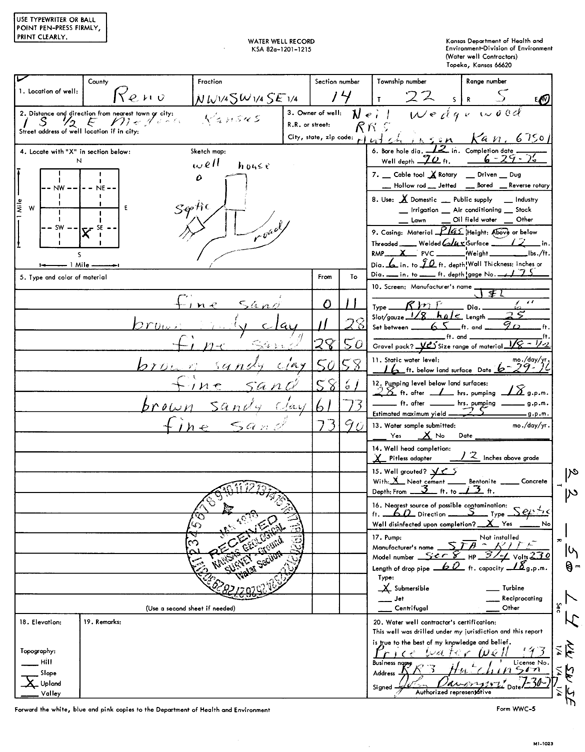 USE TYPEWRITER OR BALL
POINT PEN-PRESS FIRMLY,
PRINT CLEARLY.
WATER WELL RECORD
KSA 82a-1201-1215
Kansas Department of Health and
Environment-Division of Environment
(Water well Contractors)
Topeka, Kansas 66620
1. Location of well:
County Reno
Fraction NW 1/4 SW 1/4 SE 1/4
Section number 14
Township number T 22 S
Range number R 5 E/W
2. Distance and direction from nearest town or city: 1 S 1/2 E Kansas
Street address of well location if in city:
3. Owner of well: Neil Wedgewood
R.R. or street: RR 5
City, state, zip code: Hutchinson Kan. 67501
4. Locate with "X" in section below:
N
NW NE
W E
SW SE
X
S
1 Mile
1 Mile
Sketch map:
well house
Septic
road
5. Type and color of material From To
fine sand 0 11
brown sandy clay 11 28
fine sand 28 50
brown sandy clay 50 58
fine sand 58 61
brown sandy clay 61 73
fine sand 73 90
RECEIVED
KANSAS GEOLOGICAL
SURVEY-Ground
Water Section
(Use a second sheet if needed)
6. Bore hole dia. 12 in. Completion date
Well depth 90 ft. 6-29-76
7. Cable tool X Rotary Driven Dug
Hollow rod Jetted Bored Reverse rotary
8. Use: X Domestic Public supply Industry
Irrigation Air conditioning Stock
Lawn Oil field water Other
9. Casing: Material Plas Height: Above or below
Threaded Welded Glue Surface 12 in.
RMP X PVC Weight lbs./ft.
Dia. 6 in. to 90 ft. depth Wall Thickness: inches or
Dia. in. to ft. depth gage No. .175
10. Screen: Manufacturer's name
Type RMP Dia. 6"
Slot/gauze 1/8 hole Length 25
Set between 65 ft. and 90 ft.
ft. and ft.
Gravel pack? yes Size range of material 1/8-1/2
11. Static water level: mo./day/yr.
16 ft. below land surface Date 6-29-76
12. Pumping level below land surfaces:
28 ft. after 1 hrs. pumping 18 g.p.m.
ft. after hrs. pumping g.p.m.
Estimated maximum yield 25 g.p.m.
13. Water sample submitted: mo./day/yr.
Yes X No Date
14. Well head completion:
X Pitless adapter 12 Inches above grade
15. Well grouted? yes
With: X Neat cement Bentonite Concrete
Depth: From 3 ft. to 13 ft.
16. Nearest source of possible contamination:
ft. 60 Direction S Type Septic
Well disinfected upon completion? X Yes No
17. Pump: Not installed
Manufacturer's name STA-RITE
Model number HP 3/4 Volts 230
Length of drop pipe 60 ft. capacity 18 g.p.m.
Type:
X Submersible Turbine
Jet Reciprocating
Centrifugal Other
18. Elevation:
19. Remarks:
Topography:
Hill
Slope
X Upland
Valley
20. Water well contractor's certification:
This well was drilled under my jurisdiction and this report
is true to the best of my knowledge and belief.
Price water well 193
Business name License No.
Address RR3 Hutchinson
Signed John Date 7-30-77
Authorized representative
Forward the white, blue and pink copies to the Department of Health and Environment
Form WWC-5
22 T 5 R 14 Sec NW SW SE 1/4 1/4 1/4
M1-1053